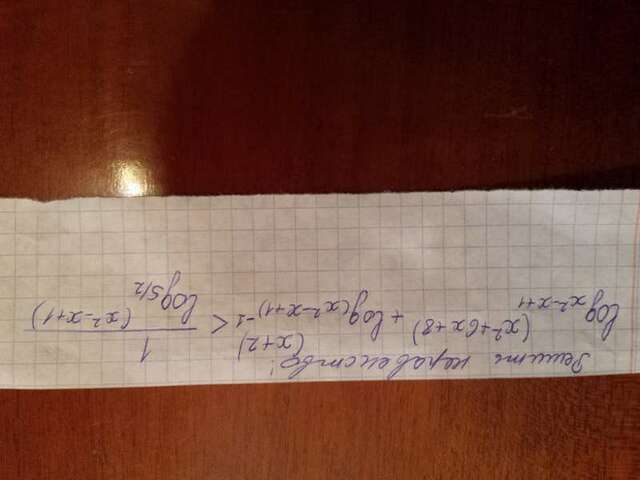 Решить неравенство!
log_{x²-x+1} (x²+6x+8) + log_{(x²-x+1)⁻¹} (x+2) < 1 / log_{5/2} (x²-x+1)